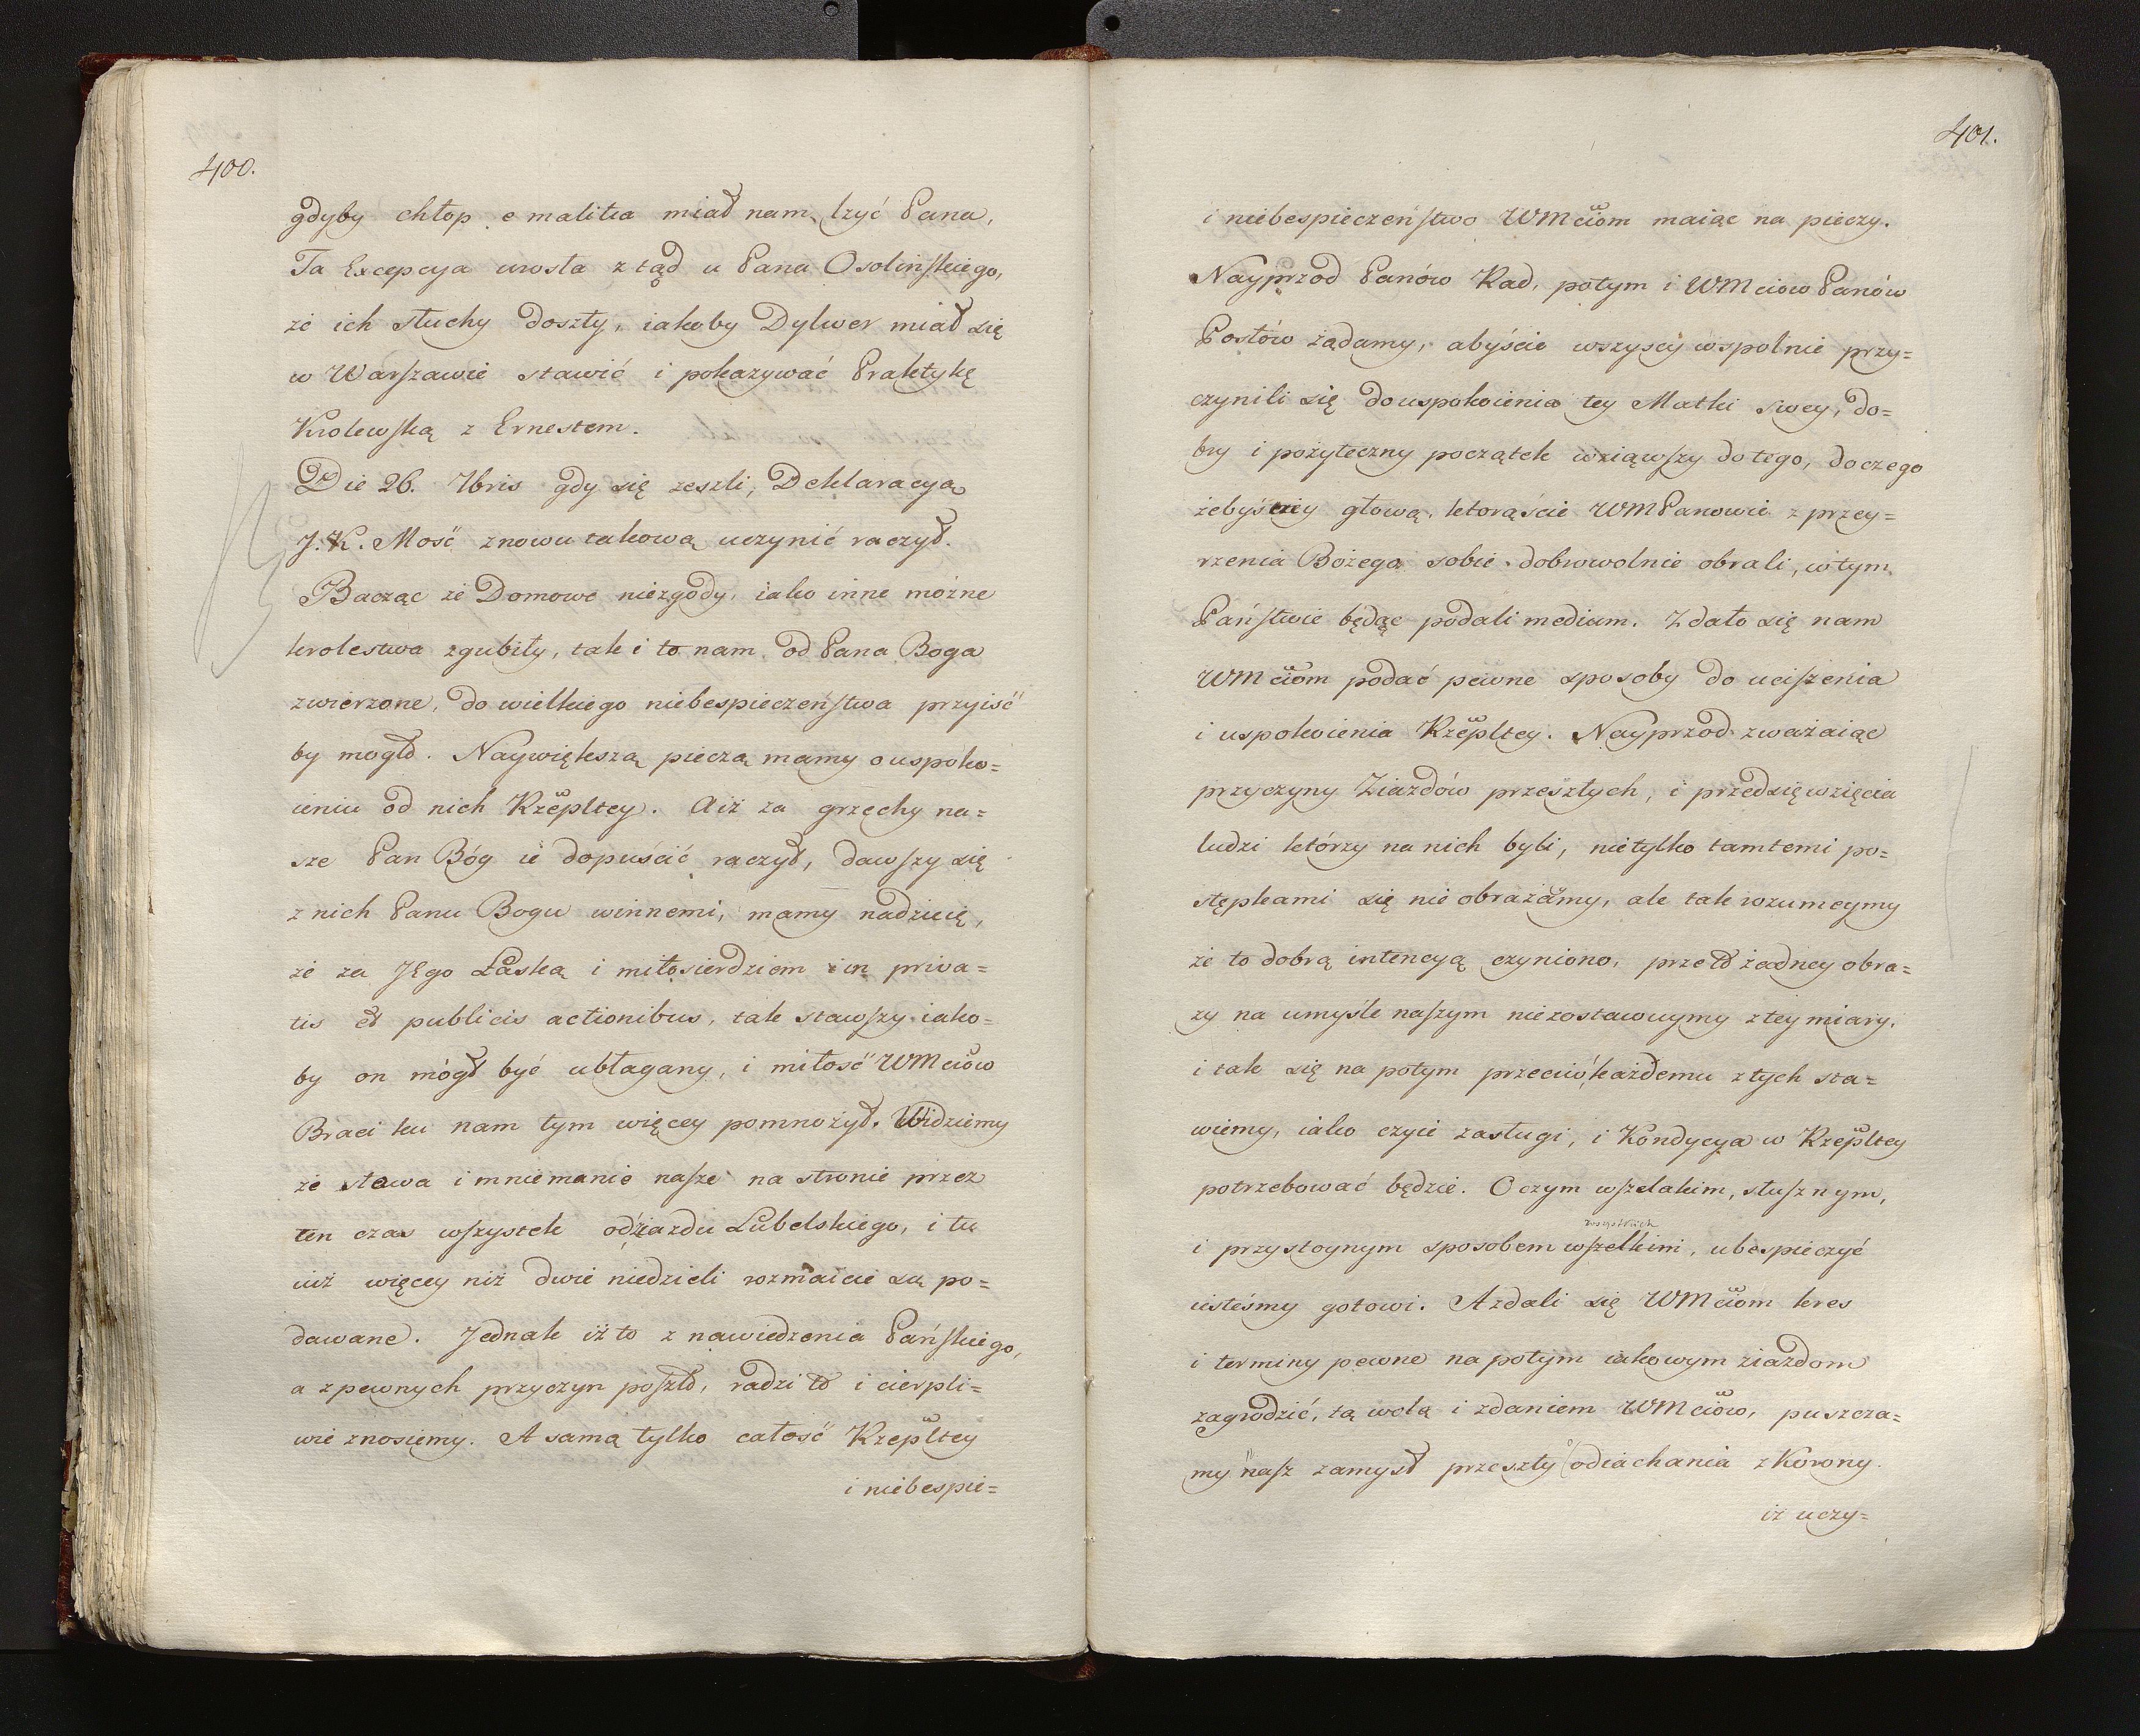 400.
gdyby chłop e malitia miał nam lzyć Pana,
Ta Excepcya urosła ztąd u Pana Osolinskiego,
że ich słuchy doszły, iakoby Dylwer miał się
w Warszawie stawić i pokazywać Praktykę
Krolewską z Ernestem.
Die 26. 7bris gdy się zeszli, Deklaracyą
J. K. Mość znowu takową uczynić raczył.
Bacząc że Domowe niezgody, iako inne możne
krolestwa zgubiły, tak i to nam od Pana Boga
zwierzone, do wielkiego niebespieczeństwa przyiść
by mogło. Naywiększą pieczą mamy o uspoko=
ieniu od nich Rzepltey. A iż za grzechy na=
sze Pan Bóg ie dopuścić raczył, dawszy się
z nich Panu Bogu winnemi, mamy nadzieię,
że za JEgo Łaską i miłosierdziem i in priva=
tis et publicis actionibus, tak stawszy iako=
by on mógł być ubłagany, i miłość WMciów
Braci ku nam tym więcey pomnożył. Widziemy
że sława i mniemanie nasze na stronie przez
ten czas wszystek od ziazdu Lubelskiego, i tu
iuż więcey niż dwie niedzieli rozmaicie są po=
dawane. Jednak iż to z nawiedzenia Pańskiego,
a z pewnych przyczyn poszło, radzi to i cierpli=
wie znosiemy. A samą tylko całość Rzepltey
i niebespie=
401.
i niebespieczeństwo WMciom maiąc na pieczy.
Nayprzod Panów Rad, potym i WMciow Panów
Posłów żądamy, abyście wszyscy wspolnie przy=
czynili się do uspokoienia tey Matki swey, do=
bry i pożyteczny początek wziąwszy do tego, do czego
żebyście głową, ktorąście WMPanowie z przey=
rzenia Bożego sobie dobrowolnie obrali, w tym
Państwie będąc podali medium. Zdało się nam
WMciom podać pewne sposoby do uciszenia
i uspokoienia Rzepltey. Nayprzod zważaiąc
przyczyny Ziazdów przeszłych, i przedsięwzięcia
ludzi którzy na nich byli, nietylko tamtemi po=
stępkami się nie obrażamy, ale tak rozumeymy
że to dobrą intencyą czyniono, przeto żadney obra=
zy na umyśle naszym niezostawuymy z tey miary,
i tak się na potym przeciw każdemu z tych sta=
wiemy, iako czyie zasługi, i Kondycya w Rzepltey
potrzebować będzie. O czym wszelakim, słusznym,
wszystkich
i przystoynym sposobem wszelkimi, ubespieczyć
iesteśmy gotowi. A zdali się WMciom kres
i terminy pewne na potym iakowym ziazdom
zagrodzić, tą wolą i zdaniem WMciów, puszcza=
my nasz zamysł przeszły odiachania z Korony.
iż uczy=